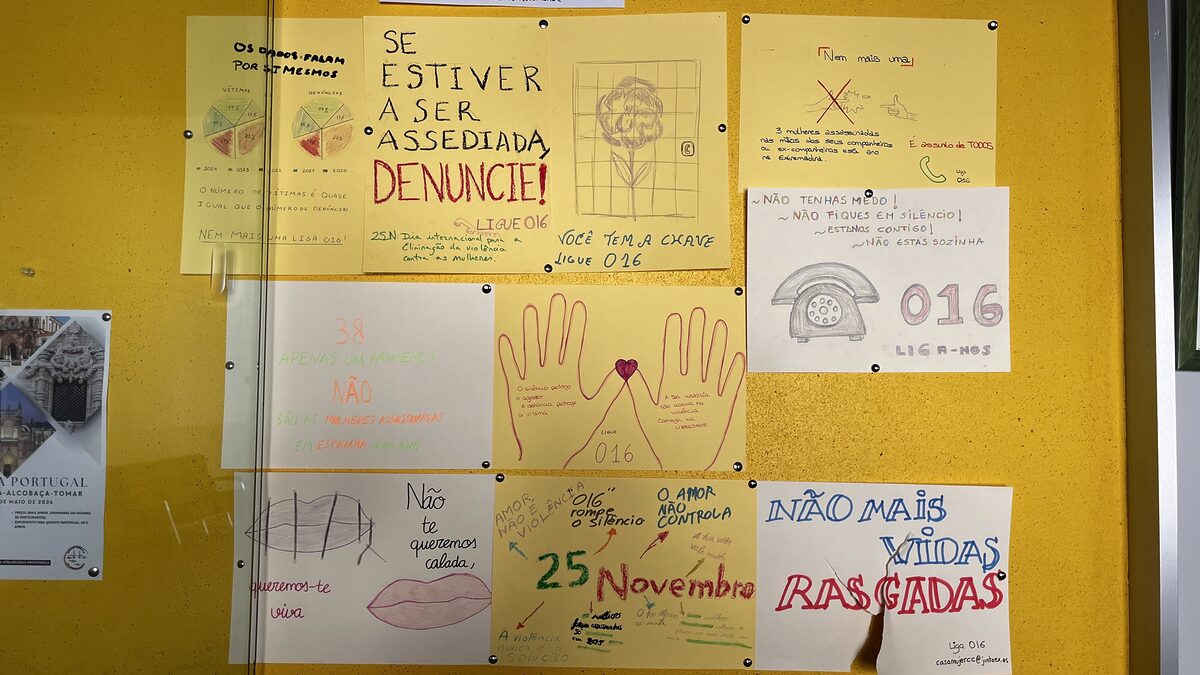 OS DADOS FALAM
POR SI MESMOS
VÍTIMAS
DENÚNCIAS
O NÚMERO DE VÍTIMAS É QUASE
IGUAL QUE O NÚMERO DE DENÚNCIAS
NEM MAIS UMA LIGA 016!
SE
ESTIVER
A SER
ASSEDIADA,
DENUNCIE!
LIGUE 016
25N: Dia internacional para a
Eliminação da violência
contra as mulheres.
VOCÊ TEM A CHAVE
LIGUE 016
"Nem mais uma"
3 mulheres assassinadas
nas mãos dos seus companheiros
ou ex-companheiros este ano
na Extremadura.
É assunto de TODOS
Liga
016
~NÃO TENHAS MEDO!
~NÃO FIQUES EM SILÊNCIO!
~ESTAMOS CONTIGO!
~NÃO ESTAS SOZINHA
016
LIGA-NOS
38
APENAS UM NÚMERO
NÃO
SÃO AS MULHERES ASSASSINADAS
EM ESPANHA NUM ANO
O silêncio protege
o agressor
A denuncia protege
a vítima
A tua história
não acaba na
violência
Começa na
liberdade
LIGUE
016
A PORTUGAL
A-ALCOBAÇA-TOMAR
DE MAIO DE 2026
Não
te
queremos
calada,
queremos-te
viva
AMOR
NÃO É
VIOLÊNCIA
"016"
rompe
o silêncio
O AMOR
NÃO
CONTROLA
25 Novembro
A violência
nunca é a
solução
mulheres
foram assassinadas
só
em 2025
NÃO MAIS
VIDAS
RASGADAS
Liga 016
casamujercc@juntaex.es